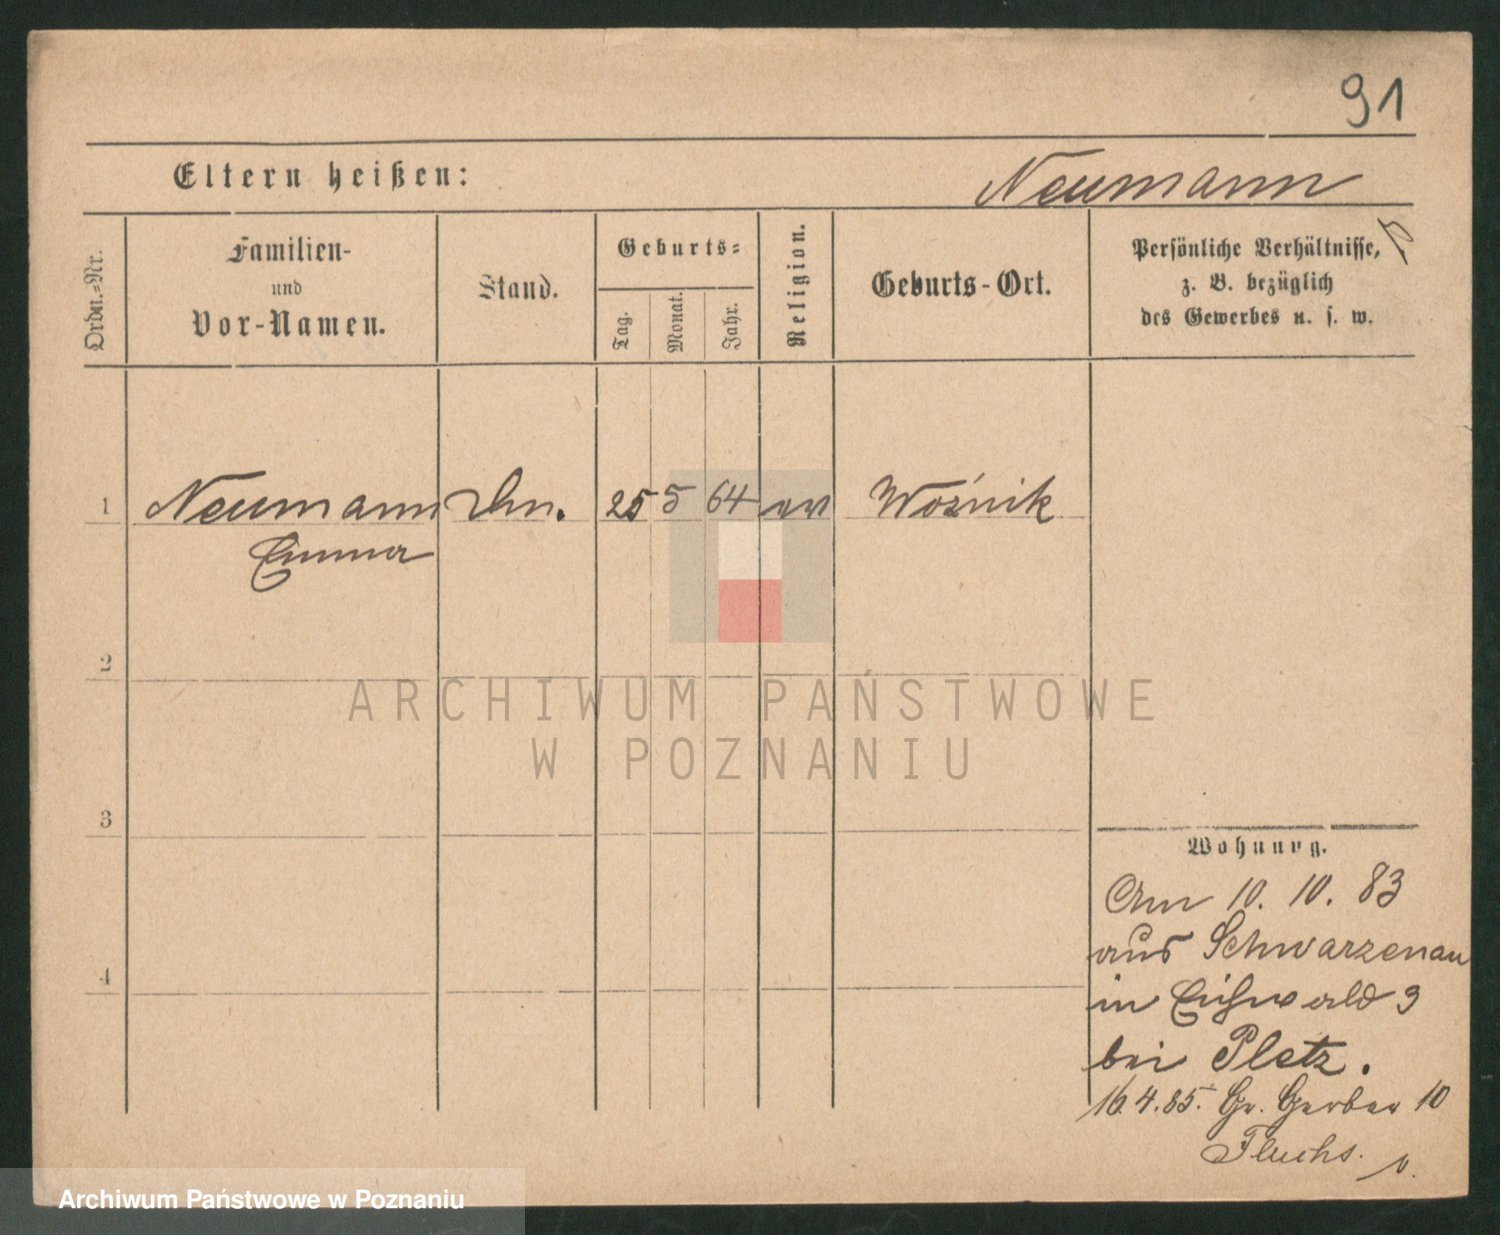 91
Eltern heißen:
Neumann
Ordn.-Nr.
Familien-
und
Vor-Namen.
Stand.
Geburts-
Tag.
Monat.
Jahr.
Religion.
Geburts-Ort.
Persönliche Verhältnisse,
z. B. bezüglich
des Gewerbes u. s. w.
1 Neumann 25 5 64 ev Woźnik
Emma
2
ARCHIWUM PAŃSTWOWE
W POZNANIU
3
Wohnung.
Am 10. 10. 83
aus Schwarzenau
4
in Eichwald 3
bei Pletz.
16.4.85. Gr. Gerber 10
Fluchs.
Archiwum Państwowe w Poznaniu